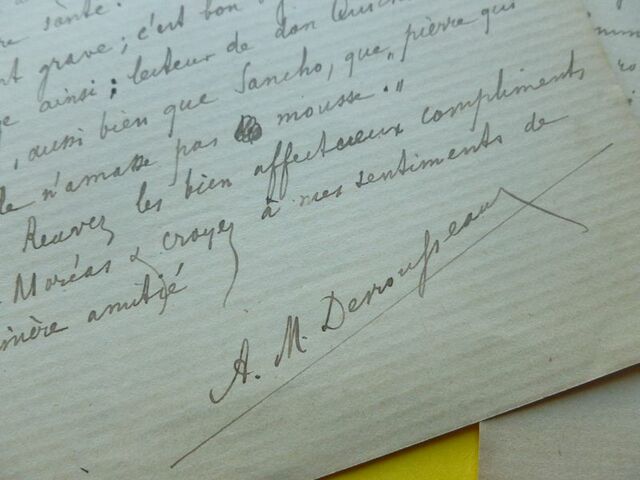 re santé.
nt grave; c'est bon
e ainsi; lecteur de don Quich
, aussi bien que Sancho, que „ pierre qui
le n'amasse pas mousse."
Recevez les bien affectueux compliments
Moréas & croyez à mes sentiments de
incère amitié
A. M. Desrousseaux